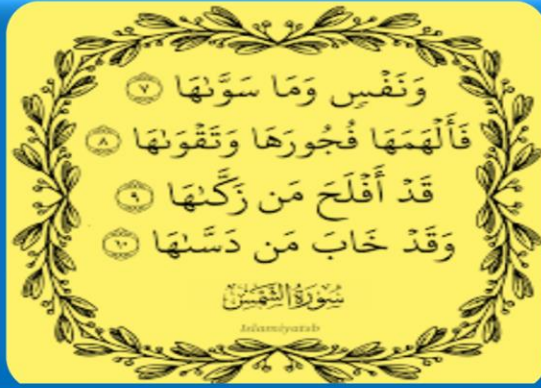 وَنَفْسٍ وَمَا سَوَّىٰهَا ٧
فَأَلْهَمَهَا فُجُورَهَا وَتَقْوَىٰهَا ٨
قَدْ أَفْلَحَ مَن زَكَّىٰهَا ٩
وَقَدْ خَابَ مَن دَسَّىٰهَا ١٠
سُورَةُ الشَّمْسِ
Islamiyatsb